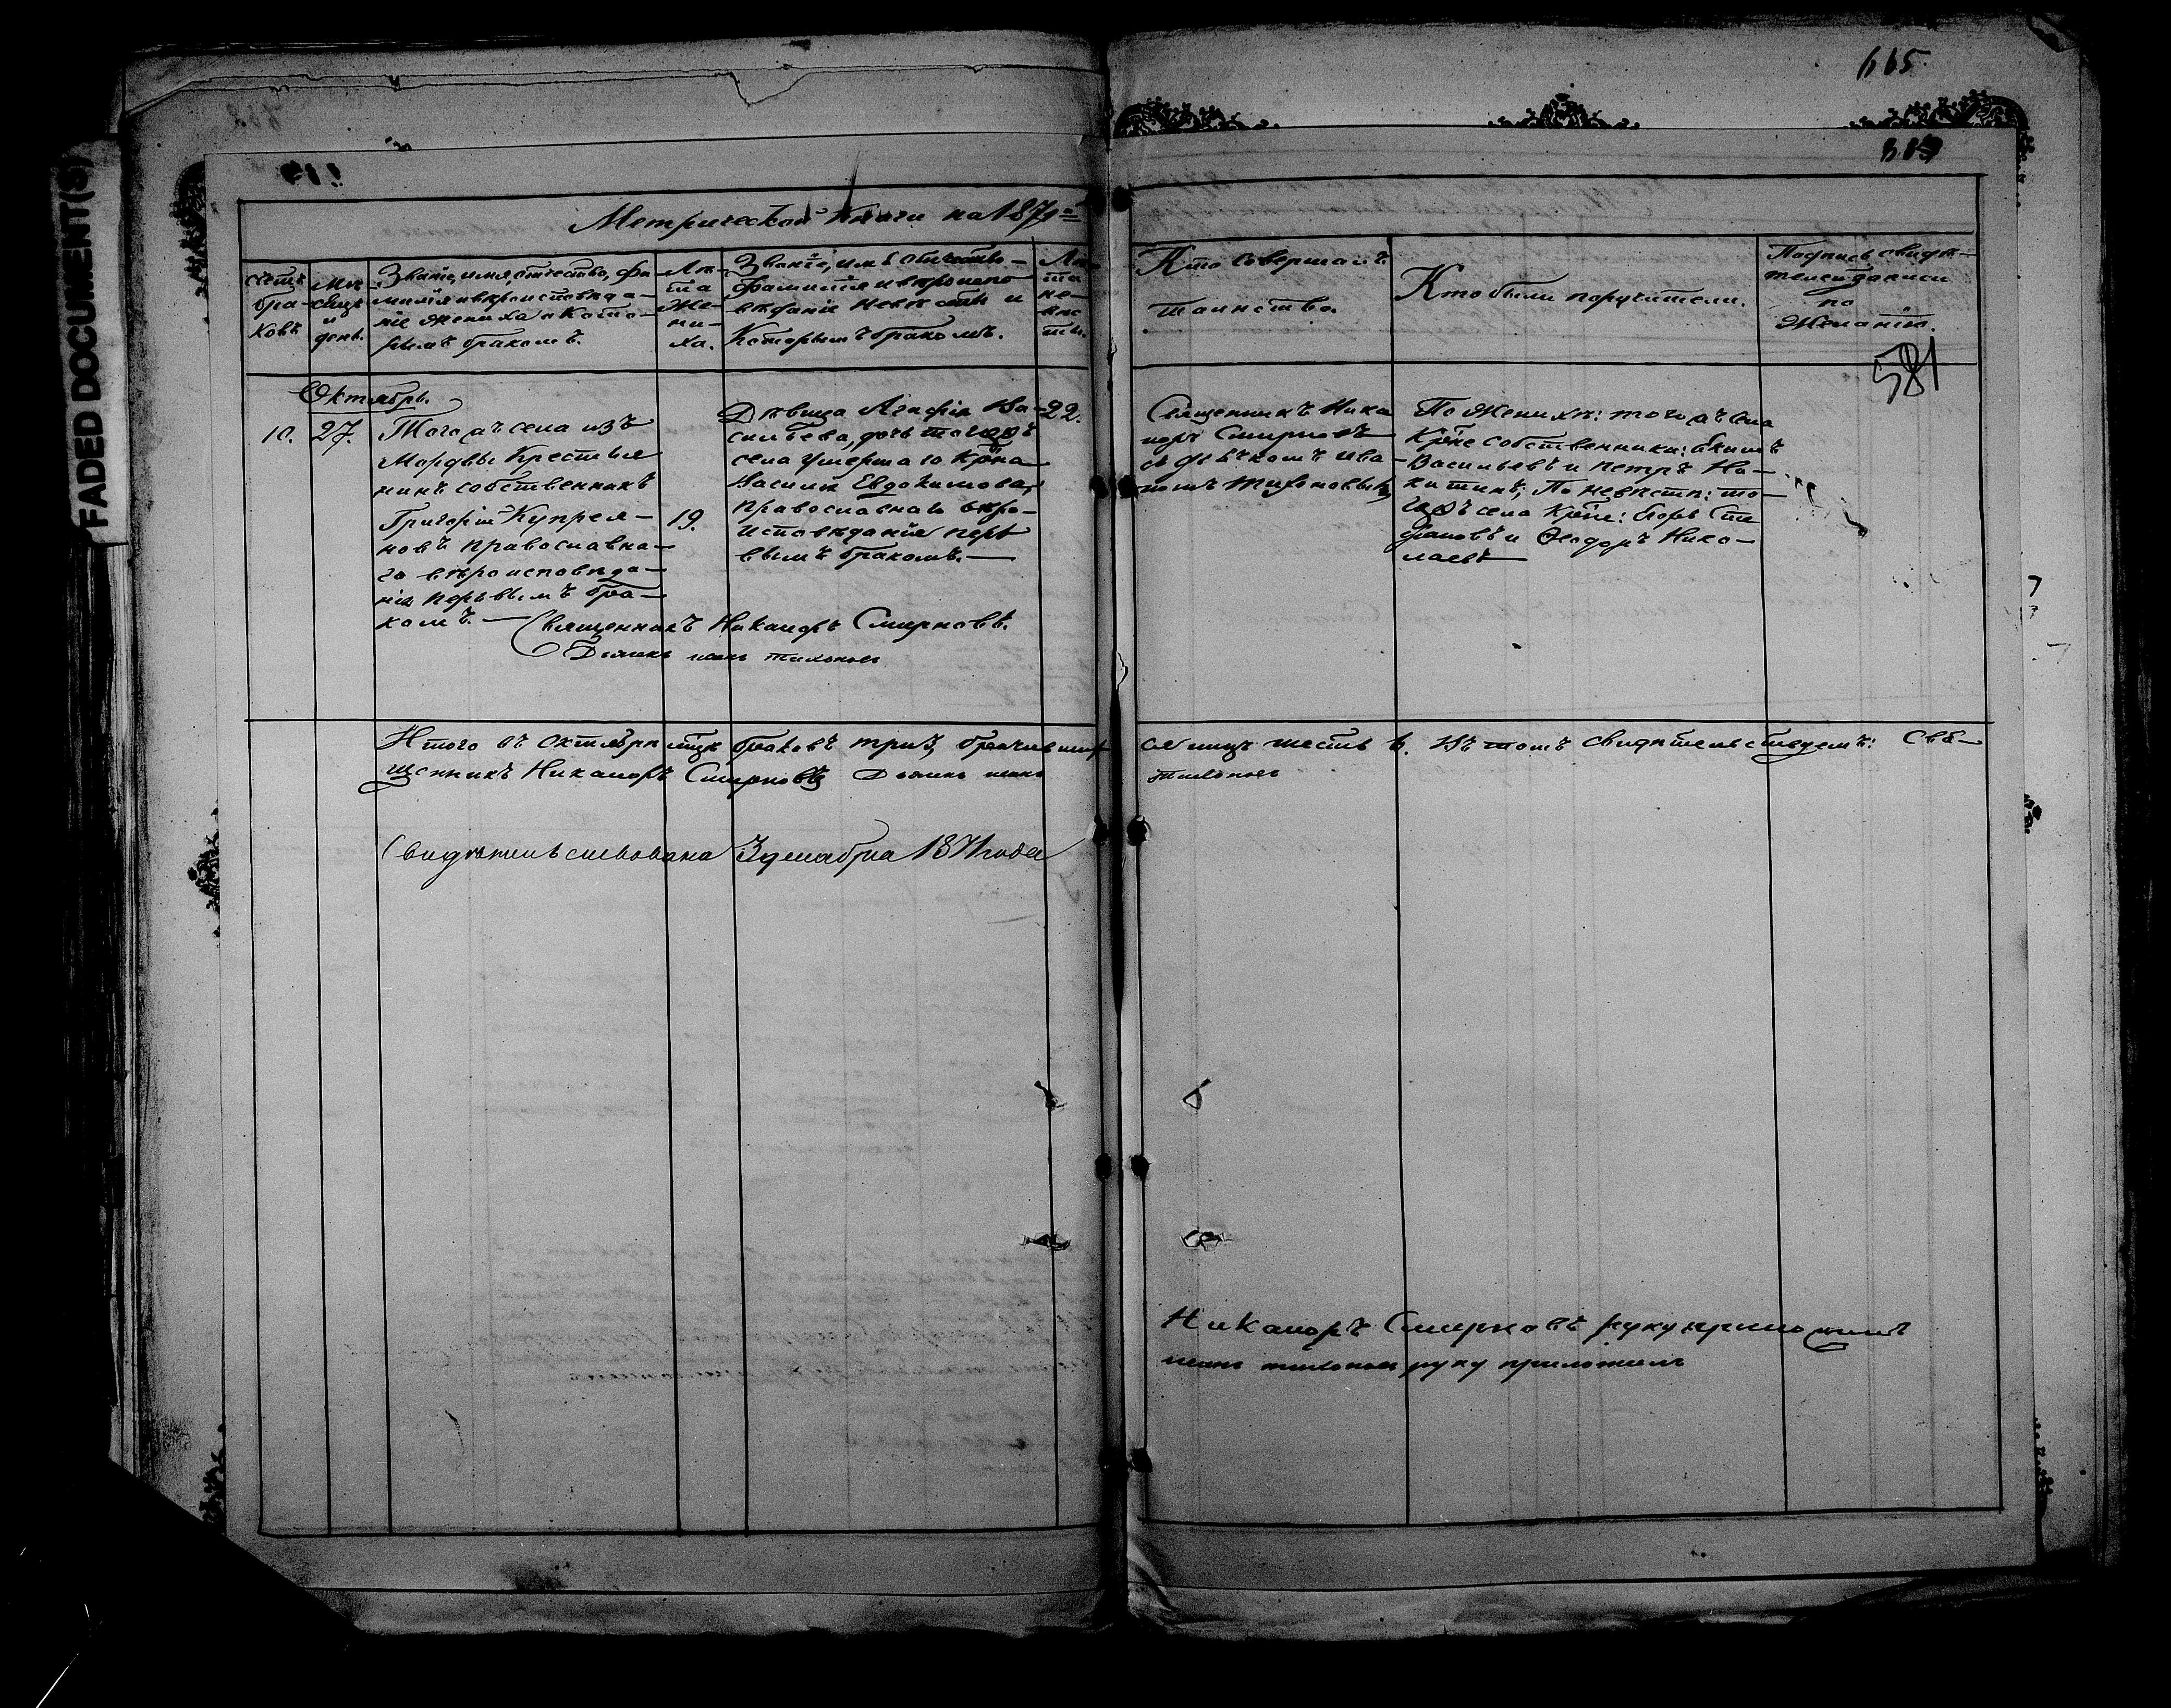 665
FADED DOCUMENT(S)
Метрической книги на 1871й
Счетъ браковъ
Мѣсяцъ и день.
Званіе, имя, отчество, фа-
милія и вѣроисповѣда-
ніе жениха и кото-
рымъ бракомъ.
Лѣ-
та
же-
ни-
ха.
Званіе, имя, отчество-
фамилія и вѣроиспо
вѣданіе невѣсты и
которымъ бракомъ.
Лѣ
та
не-
вѣс
ты.
Кто совершалъ
таинство.
Кто были поручители.
Подпись свидѣ-
телей записи
по
желанію.
581
Октябрь.
10.
27.
Того жъ села изъ
Мордвы крестья
нинъ собственникъ
Григорій Купрея-
новъ православна-
го вѣроисповѣда-
нія первымъ бра-
комъ.
19.
Дѣвица Агафія Ва-
сильева, дочь тогожъ
села умершаго Крѣна
Василія Евдокимова,
православнаго вѣро-
исповѣданія пер
вымъ бракомъ.
22.
Священникъ Ника
норъ Смирновъ
съ дьячкомъ Ива-
номъ Тихоновымъ
По женихѣ: того жъ села
Крѣне собственники: Акимъ
Васильевъ и Петръ Ни-
китинъ; По невѣстѣ: то-
гожъ села Крѣне: Егоръ Сте
фановъ и Ѳеодоръ Нико-
лаевъ
Священникъ Никаноръ Смирновъ.
Дьячекъ Иван Тихонов
Итого въ октябрѣ мцѣ браковъ три 3, брачившихся лицъ шесть 6. Въ томъ свидѣтельствуемъ: Свя-
щенникъ Никаноръ Смирновъ Дьячекъ Иван Тихонов
Свидѣтельствована 3 декабря 1871 года
Никаноръ Смирновъ руку приложилъ
Иван Тихонов руку приложилъ